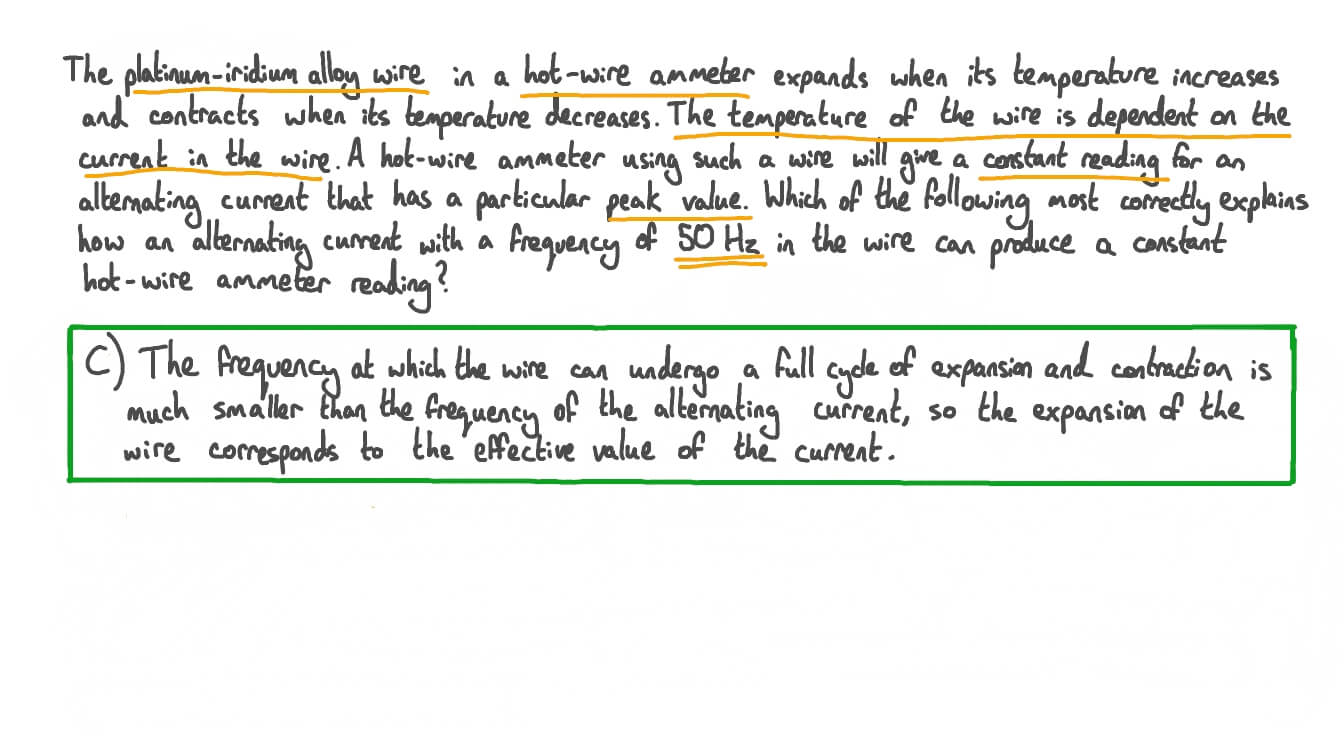 The platinum-iridium alloy wire in a hot-wire ammeter expands when its temperature increases
and contracts when its temperature decreases. The temperature of the wire is dependent on the
current in the wire. A hot-wire ammeter using such a wire will give a constant reading for an
alternating current that has a particular peak value. Which of the following most correctly explains
how an alternating current with a frequency of 50 Hz in the wire can produce a constant
hot-wire ammeter reading?
C) The frequency at which the wire can undergo a full cycle of expansion and contraction is
much smaller than the frequency of the alternating current, so the expansion of the
wire corresponds to the effective value of the current.